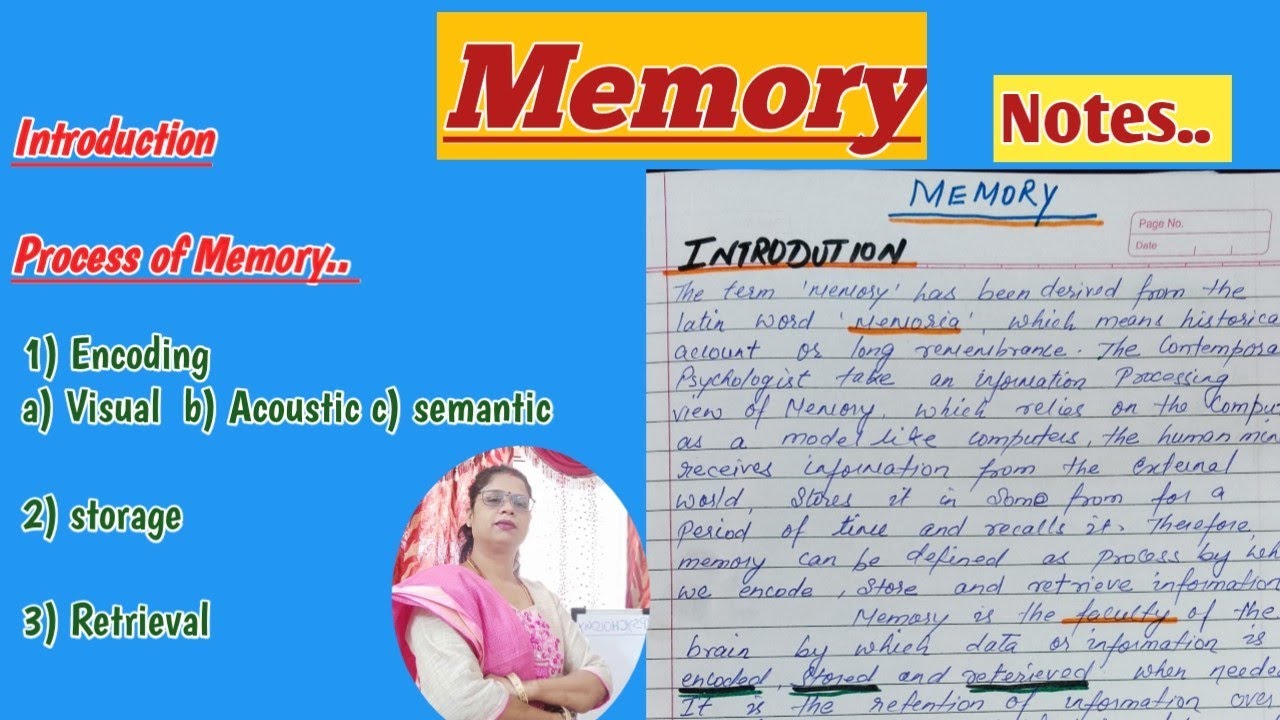 Memory
Notes..
Introduction
Process of Memory..
1) Encoding
a) Visual b) Acoustic c) semantic
2) storage
3) Retrieval
MEMORY
Page No.
Date
INTRODUTION
The term 'memory' has been derived from the
latin word 'Memoria', which means historica
account or long remembrance. The Contempora
Psychologist take an information Processing
view of Memory, which relies on the Comput
as a model like computers, the human min
receives information from the external
world, stores it in some from for a
Period of time and recalls it. Therefore,
memory can be defined as process by wh
we encode, store and retrieve information
Memory is the faculty of the
brain by which data or information is
encoded, stored and reterieved when neede
It is the retention of information over
PSYCHOLOGY